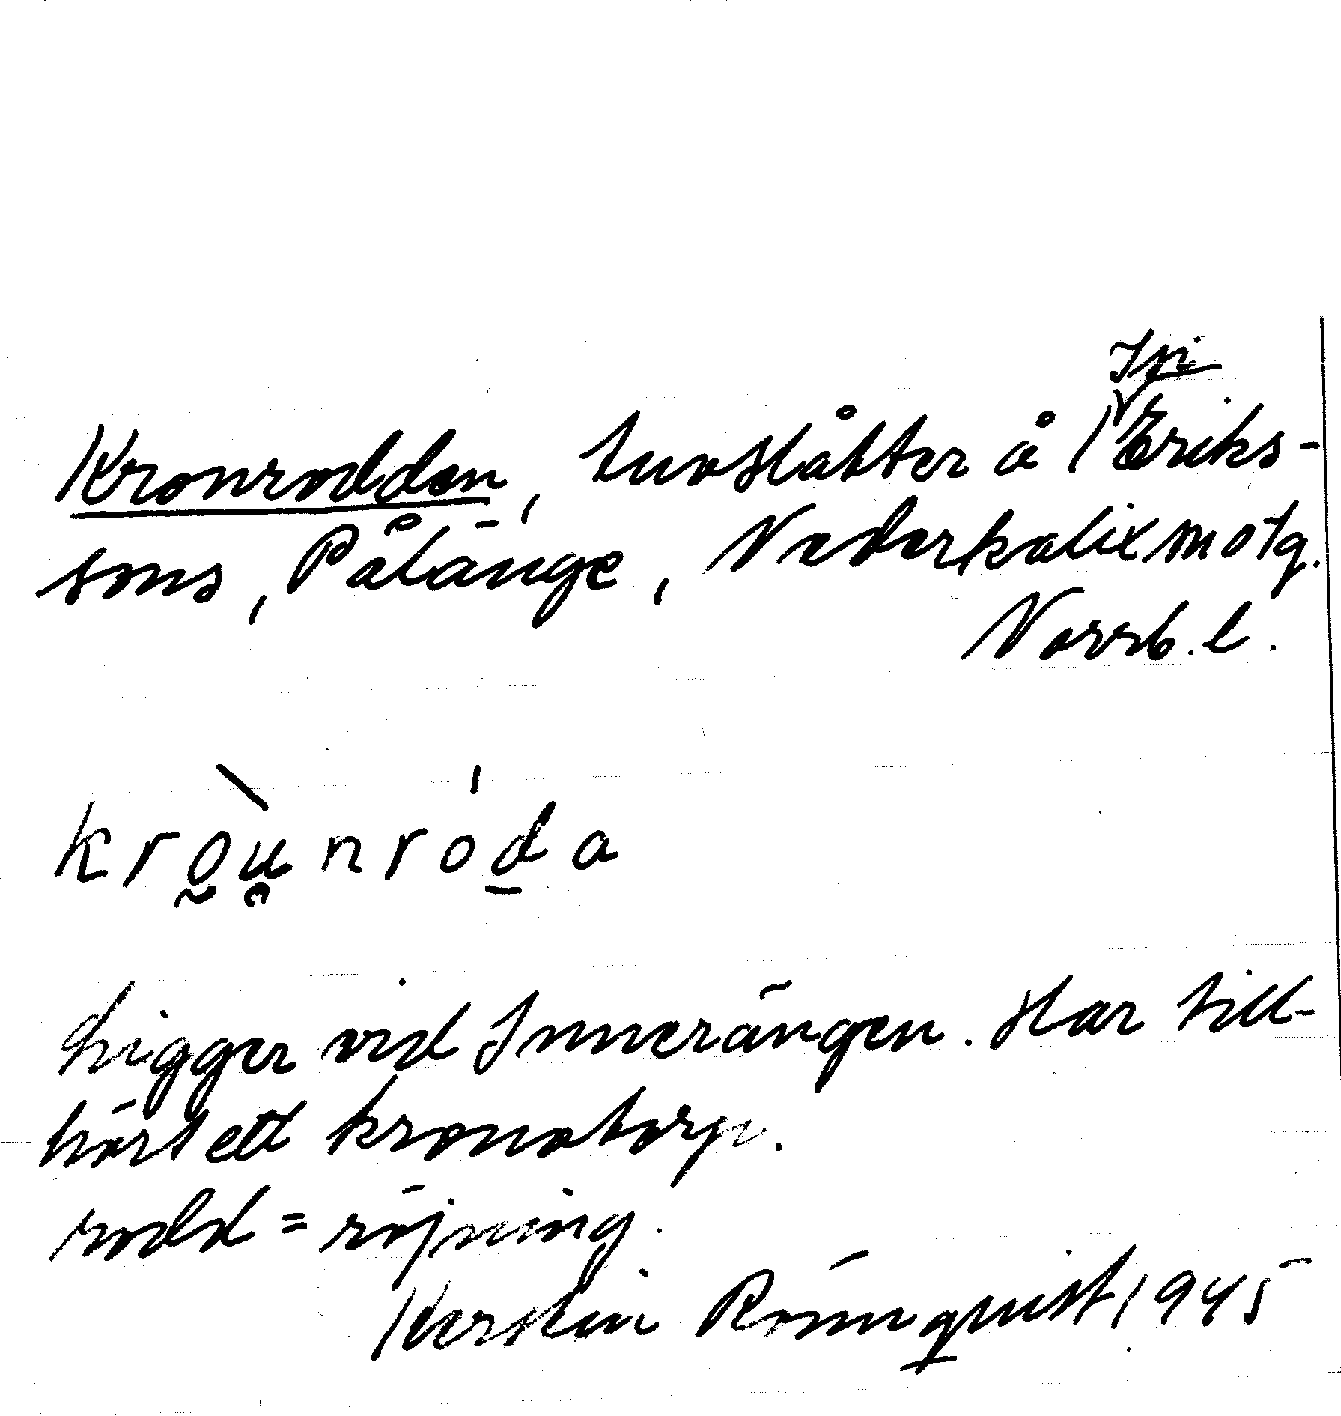 Kronrodden, tuvslåtter å 1 Eriks-
sons, Pålänge, Nederkalix
Norrb. l.
kro̰u̯nroda
Ligger vid Innerängen. Har till-
hört ett kronotorp.
rodd = röjning.
Kerstin Rönnquist 1945